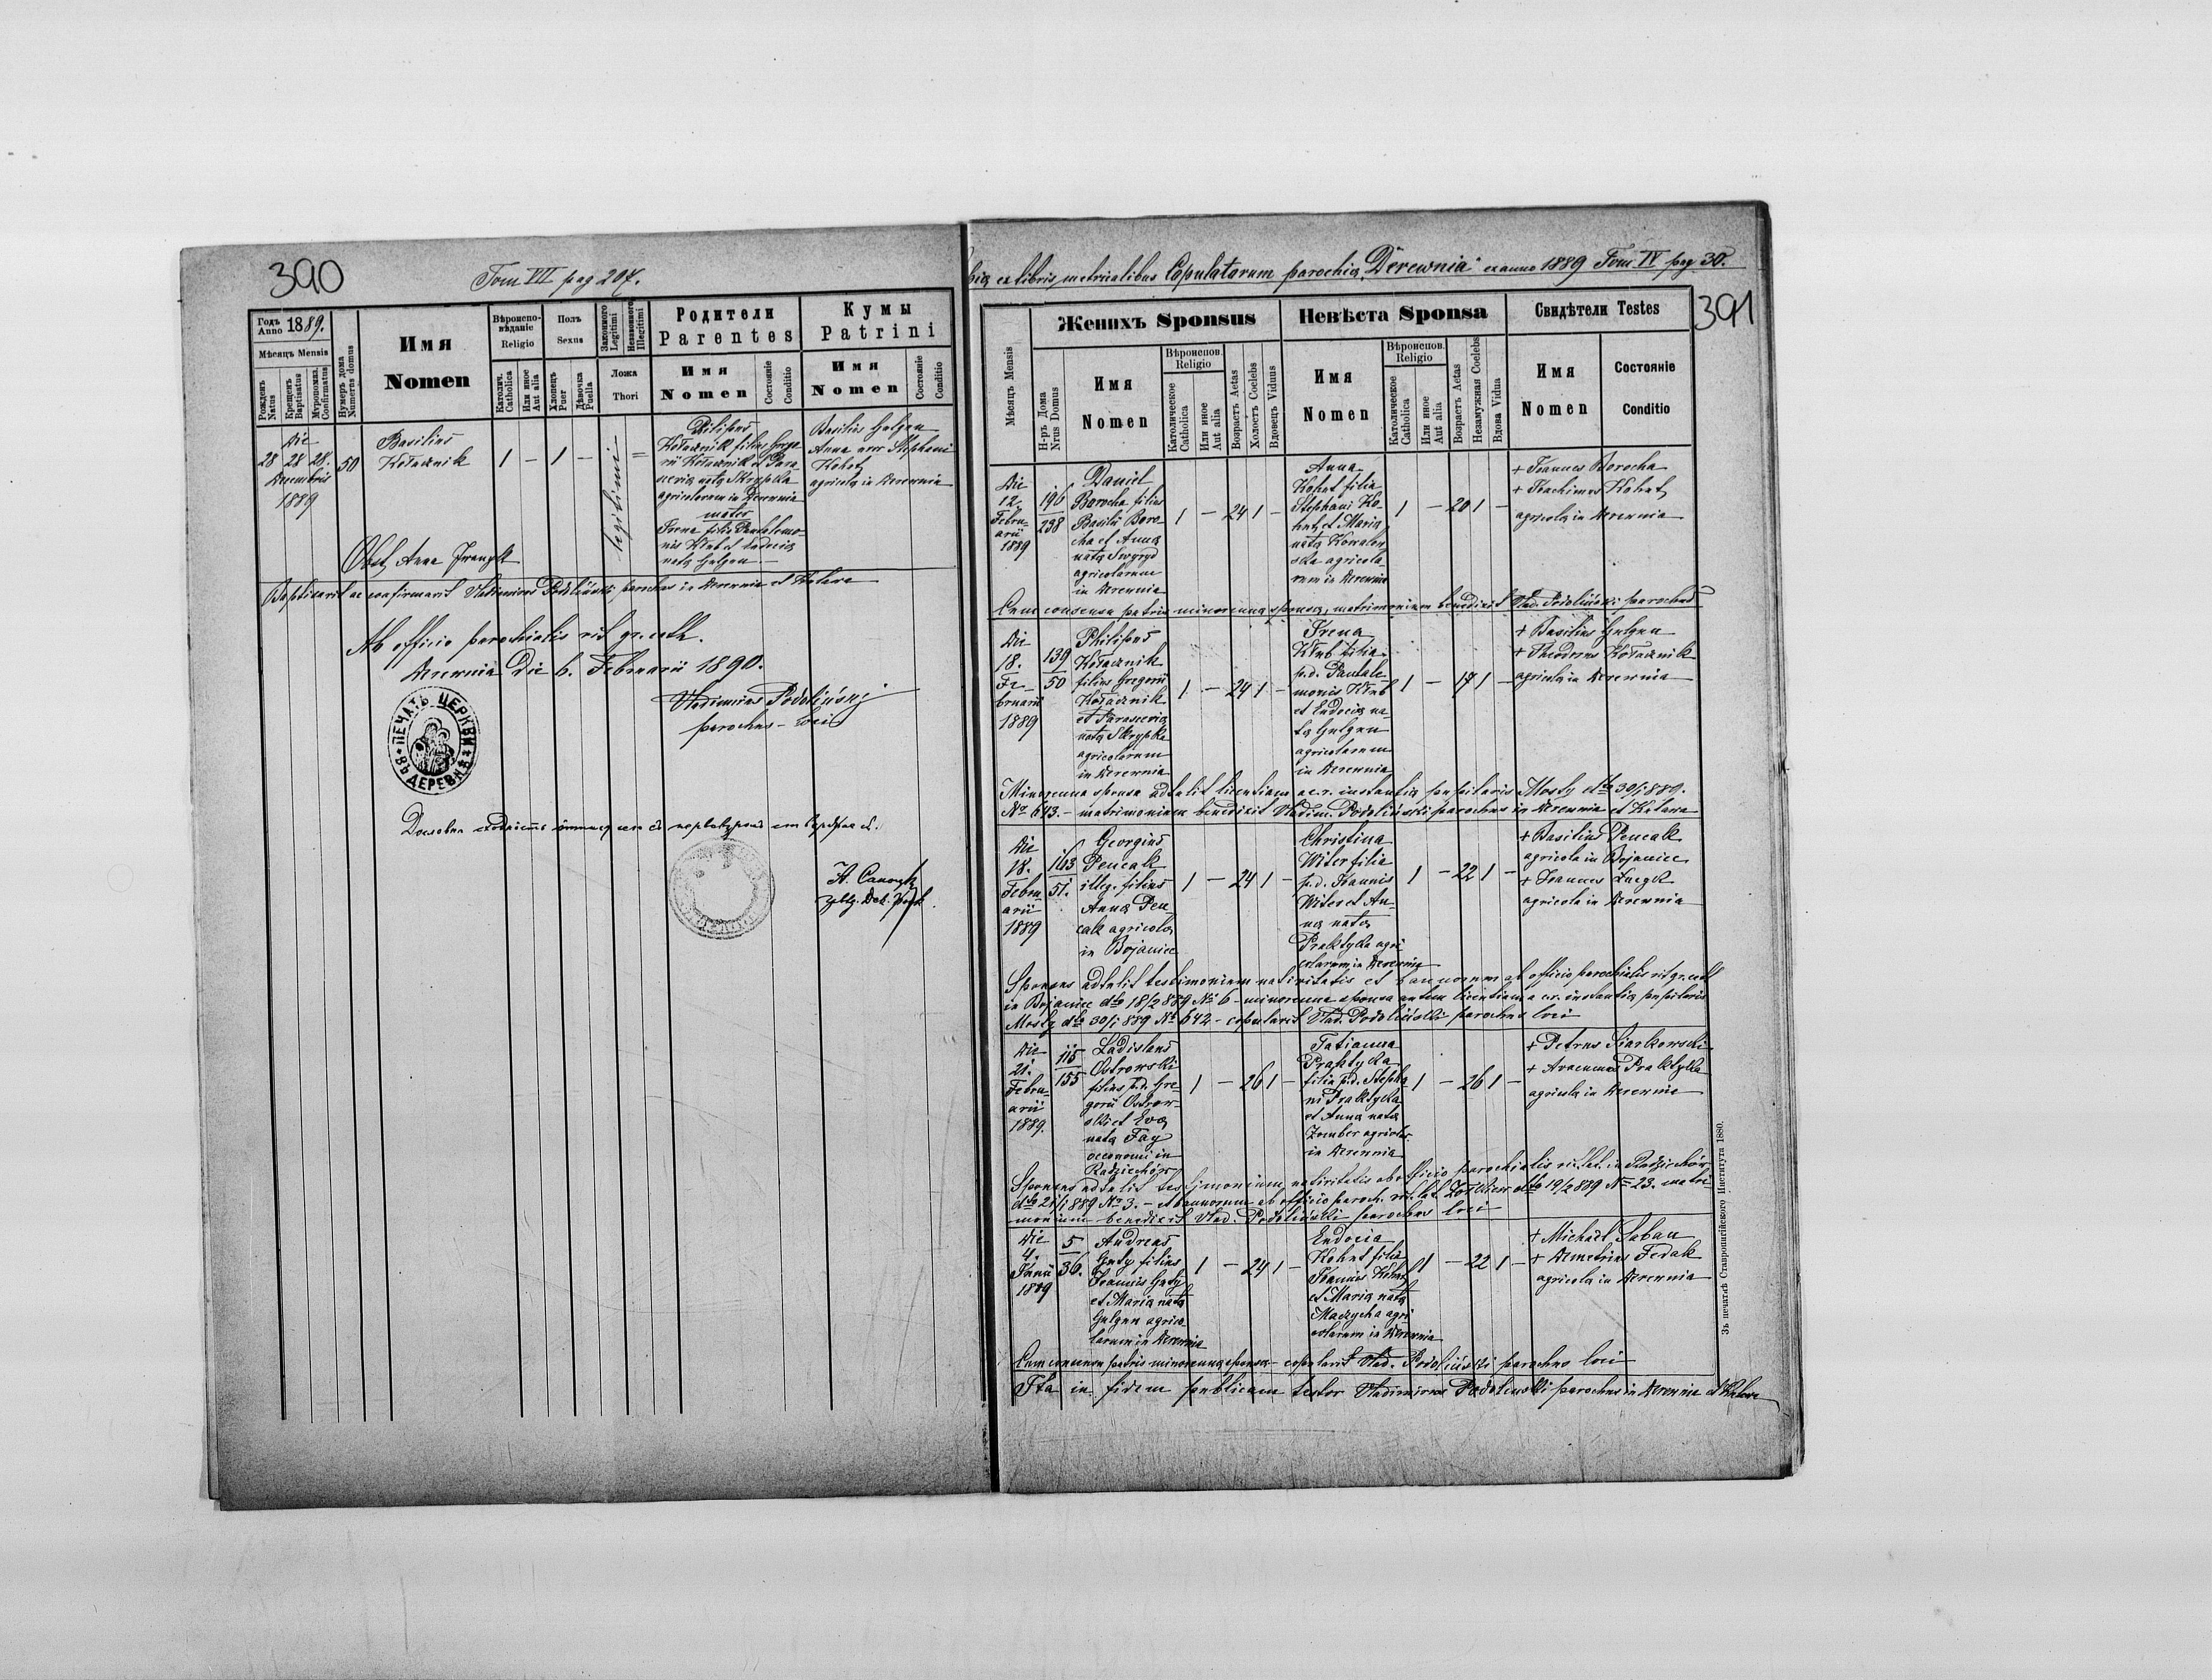 390
Tom VII pag 207.
Годъ Anno 1889.
Мѣсяцъ Mensis
Рожденъ Natus
Крещенъ Baptisatus
Мѵропомаз. Confirmatus
Нумеръ дома Numerus domus
Имя
Nomen
Вѣроиспо-
вѣданіе
Religio
Католич. Catholica
Или иное Aut alia
Полъ
Sexus
Хлопецъ Puer
Дѣвочка Puella
Законного Legitimi
Незаконного Illegitimi
Ложа
Thori
Родители
Parentes
Имя
Nomen
Состояніе Conditio
Кумы
Patrini
Имя
Nomen
Состояніе Conditio
Die
28 28 28.
Decembris
1889
50
Basilius
Kołacznik
1 – 1 –
legitimi
=
Philipus
Kołacznik filius Grego
rii Kołacznik et Para
scevia nata Skrypka
agricolarum in Derewnia
mater
Irena filia Pantalemo-
nis Kłub et Eudocia
nata Gulgan
Basilius Gulgan
Anna uxor Stephani
Kohut
agricola in Derewnia
Obst. Anna
Baptisavit ac confirmavit Vladimirus Podoliński parochus in Derewnia et Kulawa
Ab officio parochialis rit. gr. cath.
Derewnia Die 6. Februarii 1890.
Vladimirus Podoliński
parochus loci
ПЕЧАТЬ ЦЕРКВИ ВЪ ДЕРЕВНѢ
ex libris metricalibus Copulatorum parochia „Derewnia" ex anno 1889 Tom IV pag 30.
391
Мѣсяцъ Mensis
Н-ръ Дома Nrus Domus
Женихъ Sponsus
Имя
Nomen
Вѣроиспов.
Religio
Католическое Catholica
Или иное Aut alia
Возрастъ Aetas
Холостъ Coelebs
Вдовецъ Viduus
Невѣста Sponsa
Имя
Nomen
Вѣроиспов.
Religio
Католическое Catholica
Или иное Aut alia
Возрастъ Aetas
Незамужная Coelebs
Вдова Vidua
Свидѣтели Testes
Имя
Nomen
Состояніе
Conditio
Die
12.
Febru-
arii
1889
196
238
Daniel
Borocha filius
Basilii Boro-
cha et Anna
nata Swyryd
agricolarum
in Derewnia
1 – 24 1 –
Anna
Kohut filia
Stephani Ko-
hut et Maria
nata Kowalew
ska agricola
rum in Derewnia
1 – 20 1 –
+ Joannes Borocha
+ Joachimus Kohut
agricola in Derewnia
Cum consensu patris minorenna sponsa, matrimonium benedixit Vlad. Podoliński parochus
Die
18.
Fe-
bruarii
1889
139
50
Philipus
Kołacznik
filius Gregorii
Kołacznik
et Parascevia
nata Skrypka
agricolarum
in Derewnia
1 – 24 1 –
Irena
Kłub filia
p.d. Pantale-
monis Kłub
et Eudocia na-
ta Gulgan
agricolarum
in Derewnia
1 – 17 1 –
+ Basilius Gulgan
+ Theodorus Kołacznik
agricola in Derewnia
Minorenna sponsa adtulit licentiam a c.r. instantia pupilaris Mosty dto 30/1 889.
No 643. – matrimonium benedixit Vladim. Podoliński parochus in Derewnia et Kulawa
Die
18.
Febru-
arii
1889
163
51.
Georgius
Pencak
illeg. filius
Anna Pen-
cak agricola
in Bojaniec
1 – 24 1 –
Christina
Witer filia
p.d. Joannis
Witer et An-
na nata
Praktyka agri
colarum in Derewnia
1 – 22 1 –
+ Basilius Pencak
agricola in Bojaniec
+ Joannes
agricola in Derewnia
Sponsus adtulit testimonium nativitatis et bannorum ab officio parochialis rit. gr. cath
in Bojaniec dto 18/2 889 No 6 – minorenna sponsa autem licentiam a c.r. instantia pupilaris
Mosty dto 30/1 889 No 642 – copulavit Vlad. Podoliński parochus loci
Die
21.
Febru-
arii
1889.
115
155
Ladislaus
Ostrowski
filius p.d. Gre-
gorii Ostrow-
ski et Eva
nata Fay
oeconomi in
Radziechów
1 – 26 1 –
Tatianna
Praktyka
filia p.d. Stepha
ni Praktyka
et Anna nata
Zomber agricolar.
in Derewnia
1 – 26 1 –
+ Petrus Siarkowski
+ Praktyka
agricola in Derewnia
Sponsus adtulit testimonium nativitatis ab officio parochialis rit. lat. in Radziechów
dto 21/1 889 No 3. – et bannorum ab officio paroch. rit. lat. Żółkiew dto 19/2 889 No 23. matri-
monium benedixit Vlad. Podoliński parochus loci
Die
4.
Junii
1889
5
36.
Andreas
Guty filius
Joannis Guty
et Maria nata
Gulgan agrico-
larum in Derewnia
1 – 24 1 –
Eudocia
Kohut filia
Joannis Kohut
et Maria nata
Maczycha agri
colarum in Derewnia
1 – 22 1 –
+ Michael Saban
+ Demetrius Fedak
agricola in Derewnia
Cum consensu patris minorenna sponsa – copulavit Vlad. Podoliński parochus loci
Ita in fidem publicam testor Vladimirus Podoliński parochus in Derewnia et Kulawa
Зъ печатнѣ Ставропигійского Института 1880.